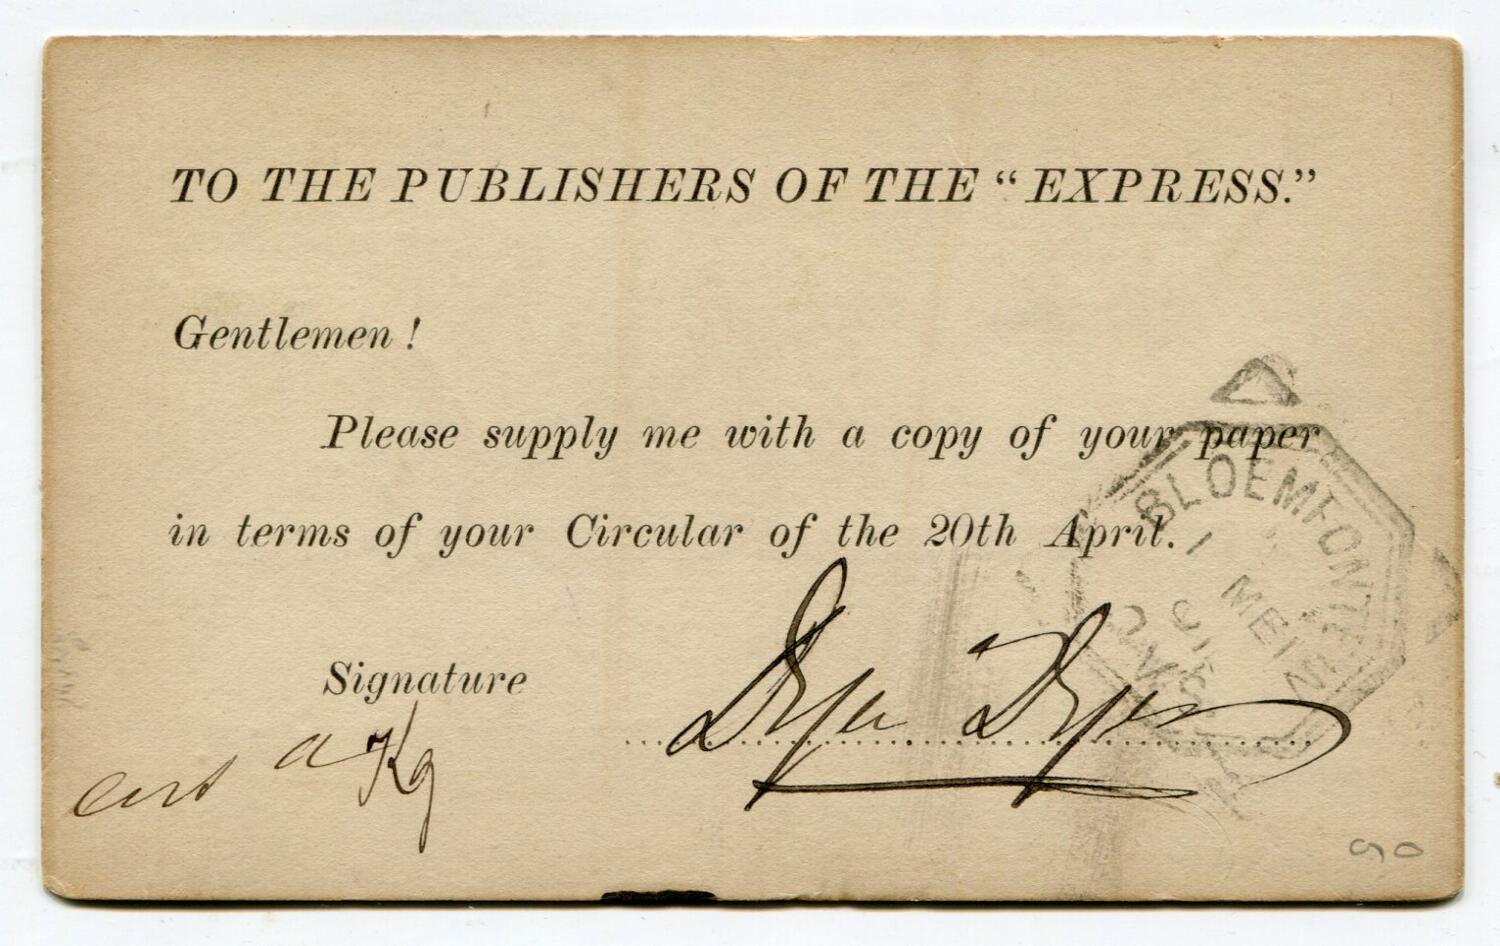 TO THE PUBLISHERS OF THE “EXPRESS.”
Gentlemen !
Please supply me with a copy of your paper
in terms of your Circular of the 20th April.
Signature
BLOEMFONTEIN
1 MEI